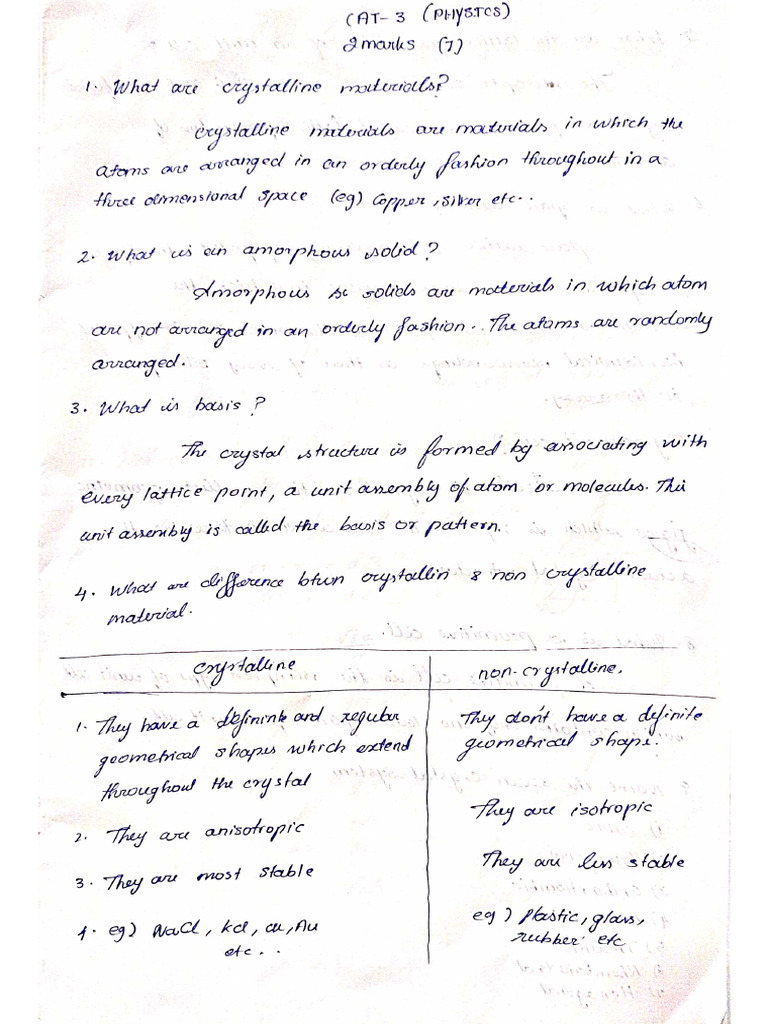 CAT-3 (PHYSICS)
2 marks (7)
1. What are crystalline materials?
Crystalline materials are materials in which the
atoms are arranged in an orderly fashion throughout in a
three dimensional space (eg) Copper, Silver etc..
2. What is an amorphous solid?
Amorphous solids are materials in which atom
are not arranged in an orderly fashion.. The atoms are randomly
arranged.
3. What is basis?
The crystal structure is formed by associating with
every lattice point, a unit assembly of atom or molecules. This
unit assembly is called the basis or pattern.
4. What are difference btwn crystallin & non crystalline
material.
crystalline
non-crystalline.
1. They have a definink and regular
geometrical shapes which extend
throughout the crystal
They don't have a definite
geometrical shape.
2. They are anisotropic
They are isotropic
3. They are most stable
They are less stable
4. eg) NaCl, kcl, cu, Au
etc...
eg) Plastic, glass,
rubber etc